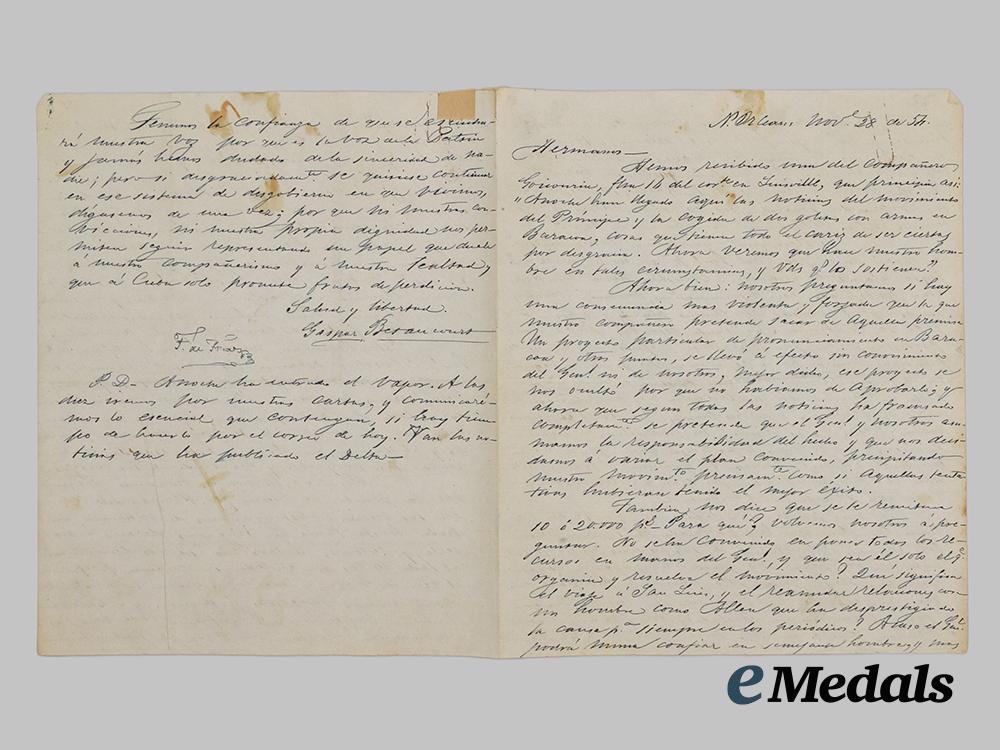 N. Orleans Nov.e 28 de 54.
Hermanos —
Hemos recibido una del Compañero
Goicouria, fha 16 del corte en Luisville, que principia así:
"Anoche han llegado aquí las noticias del movimiento
del Príncipe y la cogida de dos goletas con armas en
Baracoa, cosas que tienen todo el cariz de ser ciertas
por desgracia. Ahora veremos que hace nuestro hom-
bre en tales circunstancias, y Vds. qe los sostienen."
Ahora bien: nosotros preguntamos si hay
una consecuencia mas violenta y forzada que la que
nuestro compañero pretende sacar de aquella premisa
Un proyecto particular de pronunciamiento en Bara-
coa y otros puntos, se llevó á efecto sin conocimiento
del Genl. ni de nosotros, mejor dicho, ese proyecto se
nos ocultó por que no habiamos de aprobarlo; y
ahora que segun todas las noticias ha fracasado
completamte se pretende que el Genl y nosotros asu-
mamos la responsabilidad del hecho y que nos deci-
damos á variar el plan convenido, precipitando
nuestro movimto precisamte como si aquellas tenta-
tivas hubieran tenido el mejor éxito.
Tambien nos dice que se le remitan
10 ó 20.000 ps— Para qué? volvemos nosotros á pre-
guntar. No se ha convenido en poner todos los re-
cursos en manos del Genl. y que sea él solo el qe
organice y resuelva el movimiento? Qué significa
el viaje á San Luis, y el reanudar relaciones con
un hombre como Allen que ha desprestigiado
la causa pa siempre en los periódicos? Acaso el Genl.
podrá nunca confiar en semejante hombre, y mas
Tenemos la confianza de que se escucha-
rá nuestra voz por que es la voz de la Patria
y jamas hemos dudado de la sinceridad de na-
die; pero si desgraciadamte se quisiese continuar
en ese sistema de desgobierno en que vivimos,
dígasenos de una vez; por que ni nuestras con-
vicciones, ni nuestra propia dignidad nos per-
miten seguir representando un papel que daña
á nuestro compañerismo y á nuestra lealtad, y
que á Cuba solo promete frutos de perdicion.
Salud y libertad.
Gaspar Betancourt
P.D— Anoche ha entrado el vapor. A las
diez iremos por nuestras cartas, y comunicaré-
mos lo esencial que contengan, si hay tiem-
po de hacerlo por el correo de hoy. Van las no-
ticias que ha publicado el Delta—
eMedals